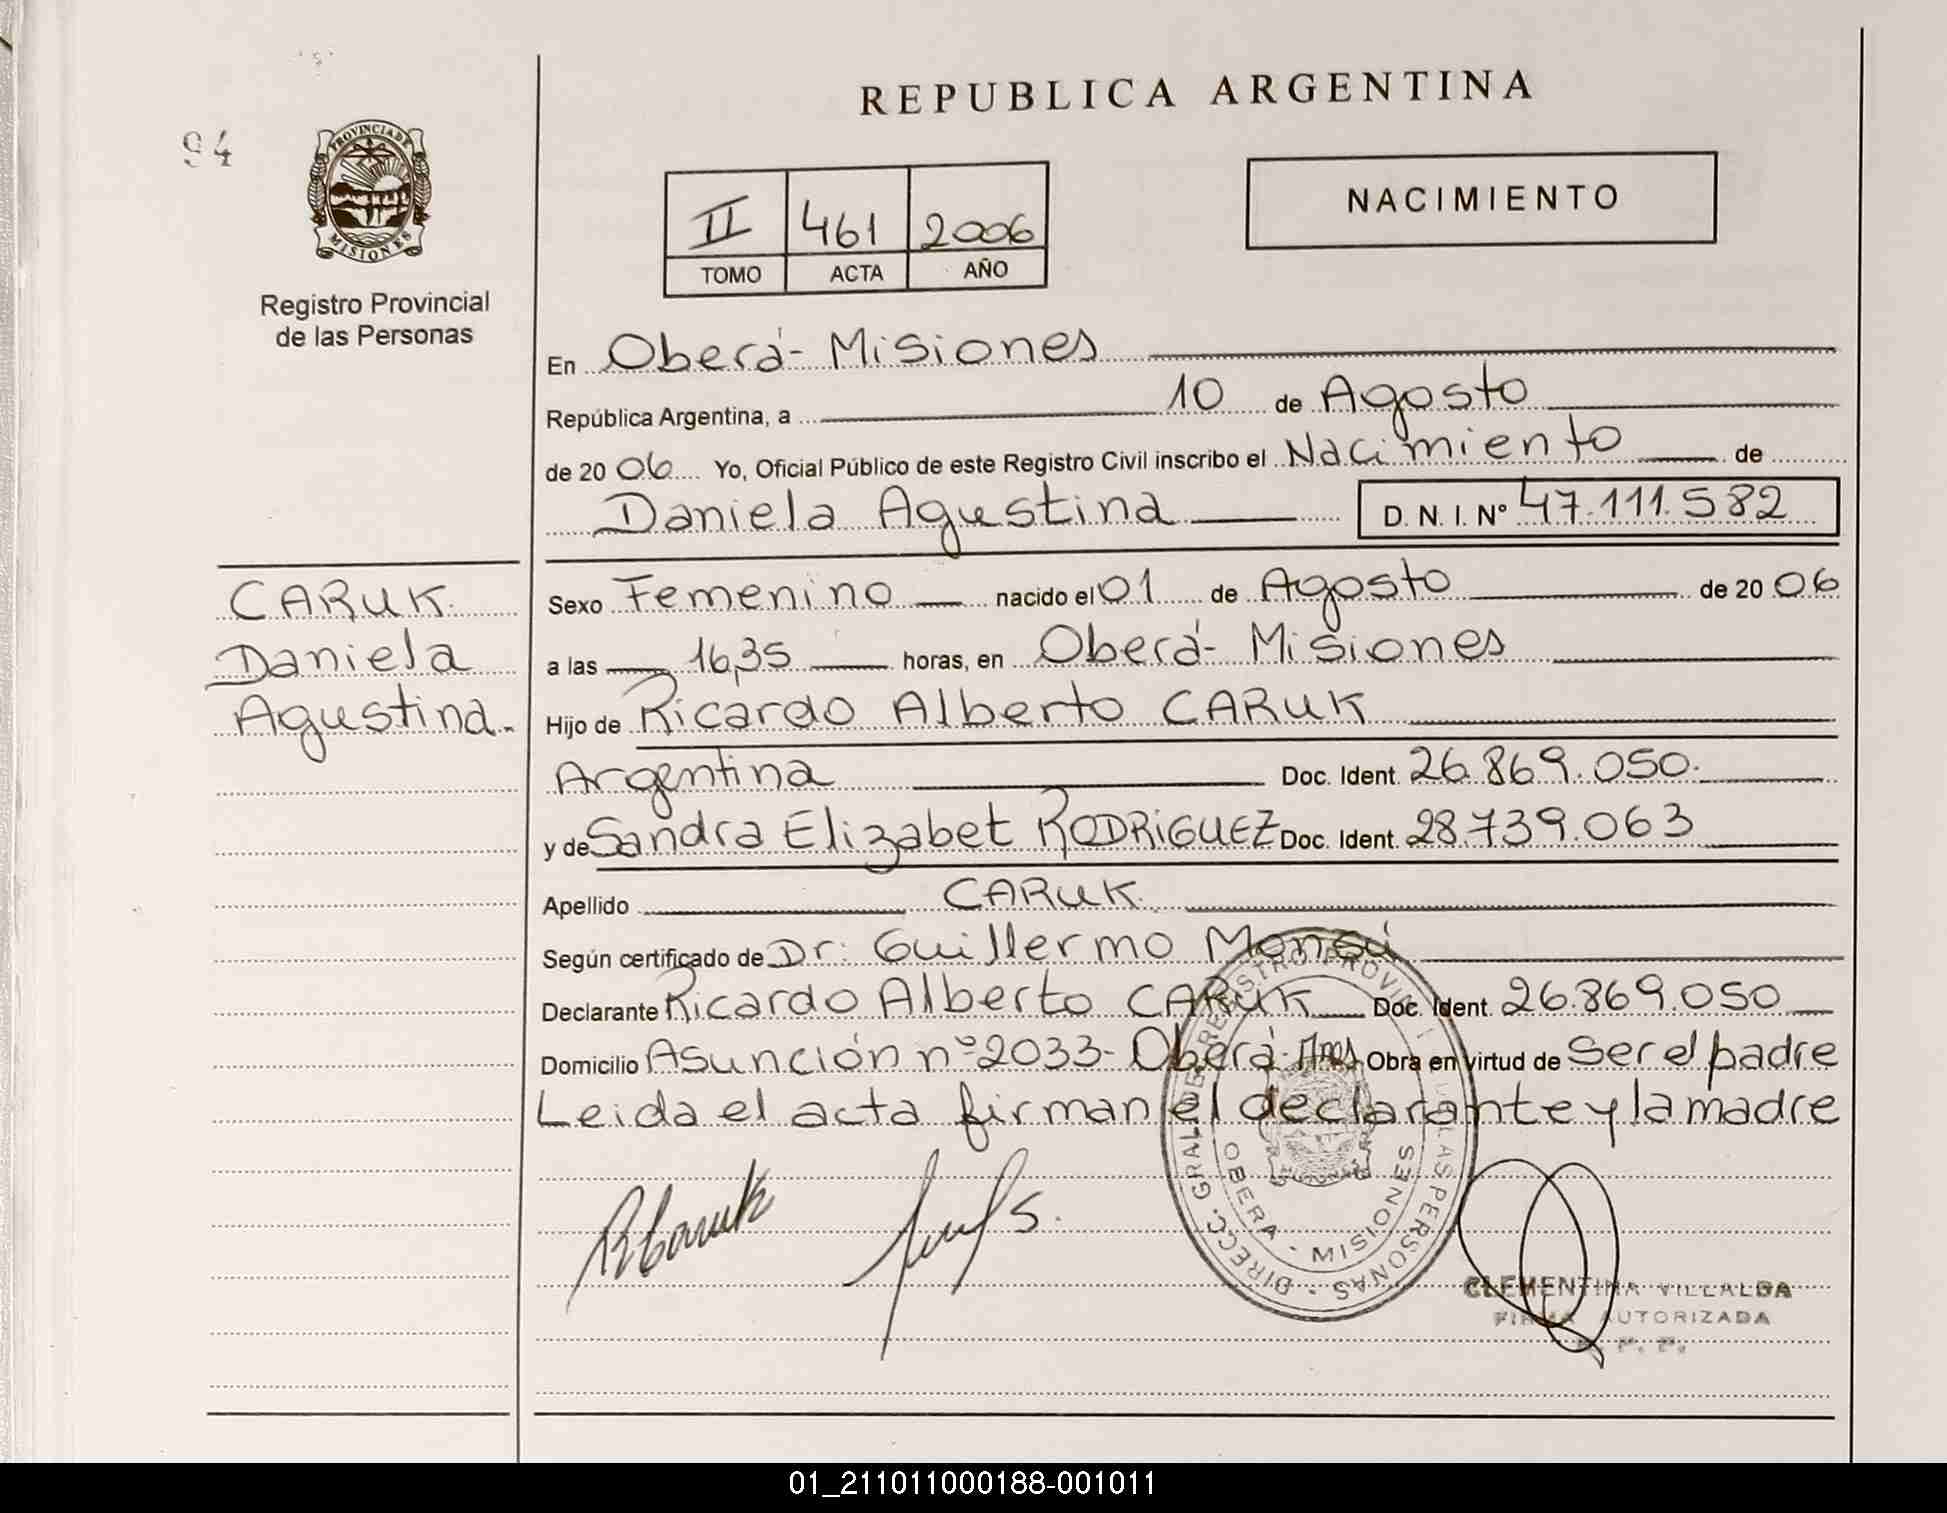 REPUBLICA ARGENTINA
94
PROVINCIA DE MISIONES
Registro Provincial
de las Personas
II 461 2006
TOMO ACTA AÑO
NACIMIENTO
En Oberá - Misiones
República Argentina, a 10 de Agosto
de 20 06 Yo, Oficial Público de este Registro Civil inscribo el Nacimiento de
Daniela Agustina D. N. I. Nº 47.111.582
CARUK
Daniela
Agustina.-
Sexo Femenino nacido el 01 de Agosto de 20 06
a las 16,35 horas, en Oberá - Misiones
Hijo de Ricardo Alberto CARUK
Argentina Doc. Ident. 26.869.050.
y de Sandra Elizabet RODRIGUEZ Doc. Ident. 28.739.063
Apellido CARUK
Según certificado de Dr. Guillermo Monsú
Declarante Ricardo Alberto CARUK Doc. Ident. 26.869.050
Domicilio Asunción nº 2033 - Oberá - Mnes Obra en virtud de Ser el padre
Leida el acta firman el declarante y la madre
DIRECC. GRAL. DE REGISTRO PROVINCIAL DE LAS PERSONAS
OBERA - MISIONES
CLEMENTINA VILLALBA
FIRMA AUTORIZADA
R. P. P.
01_211011000188-001011